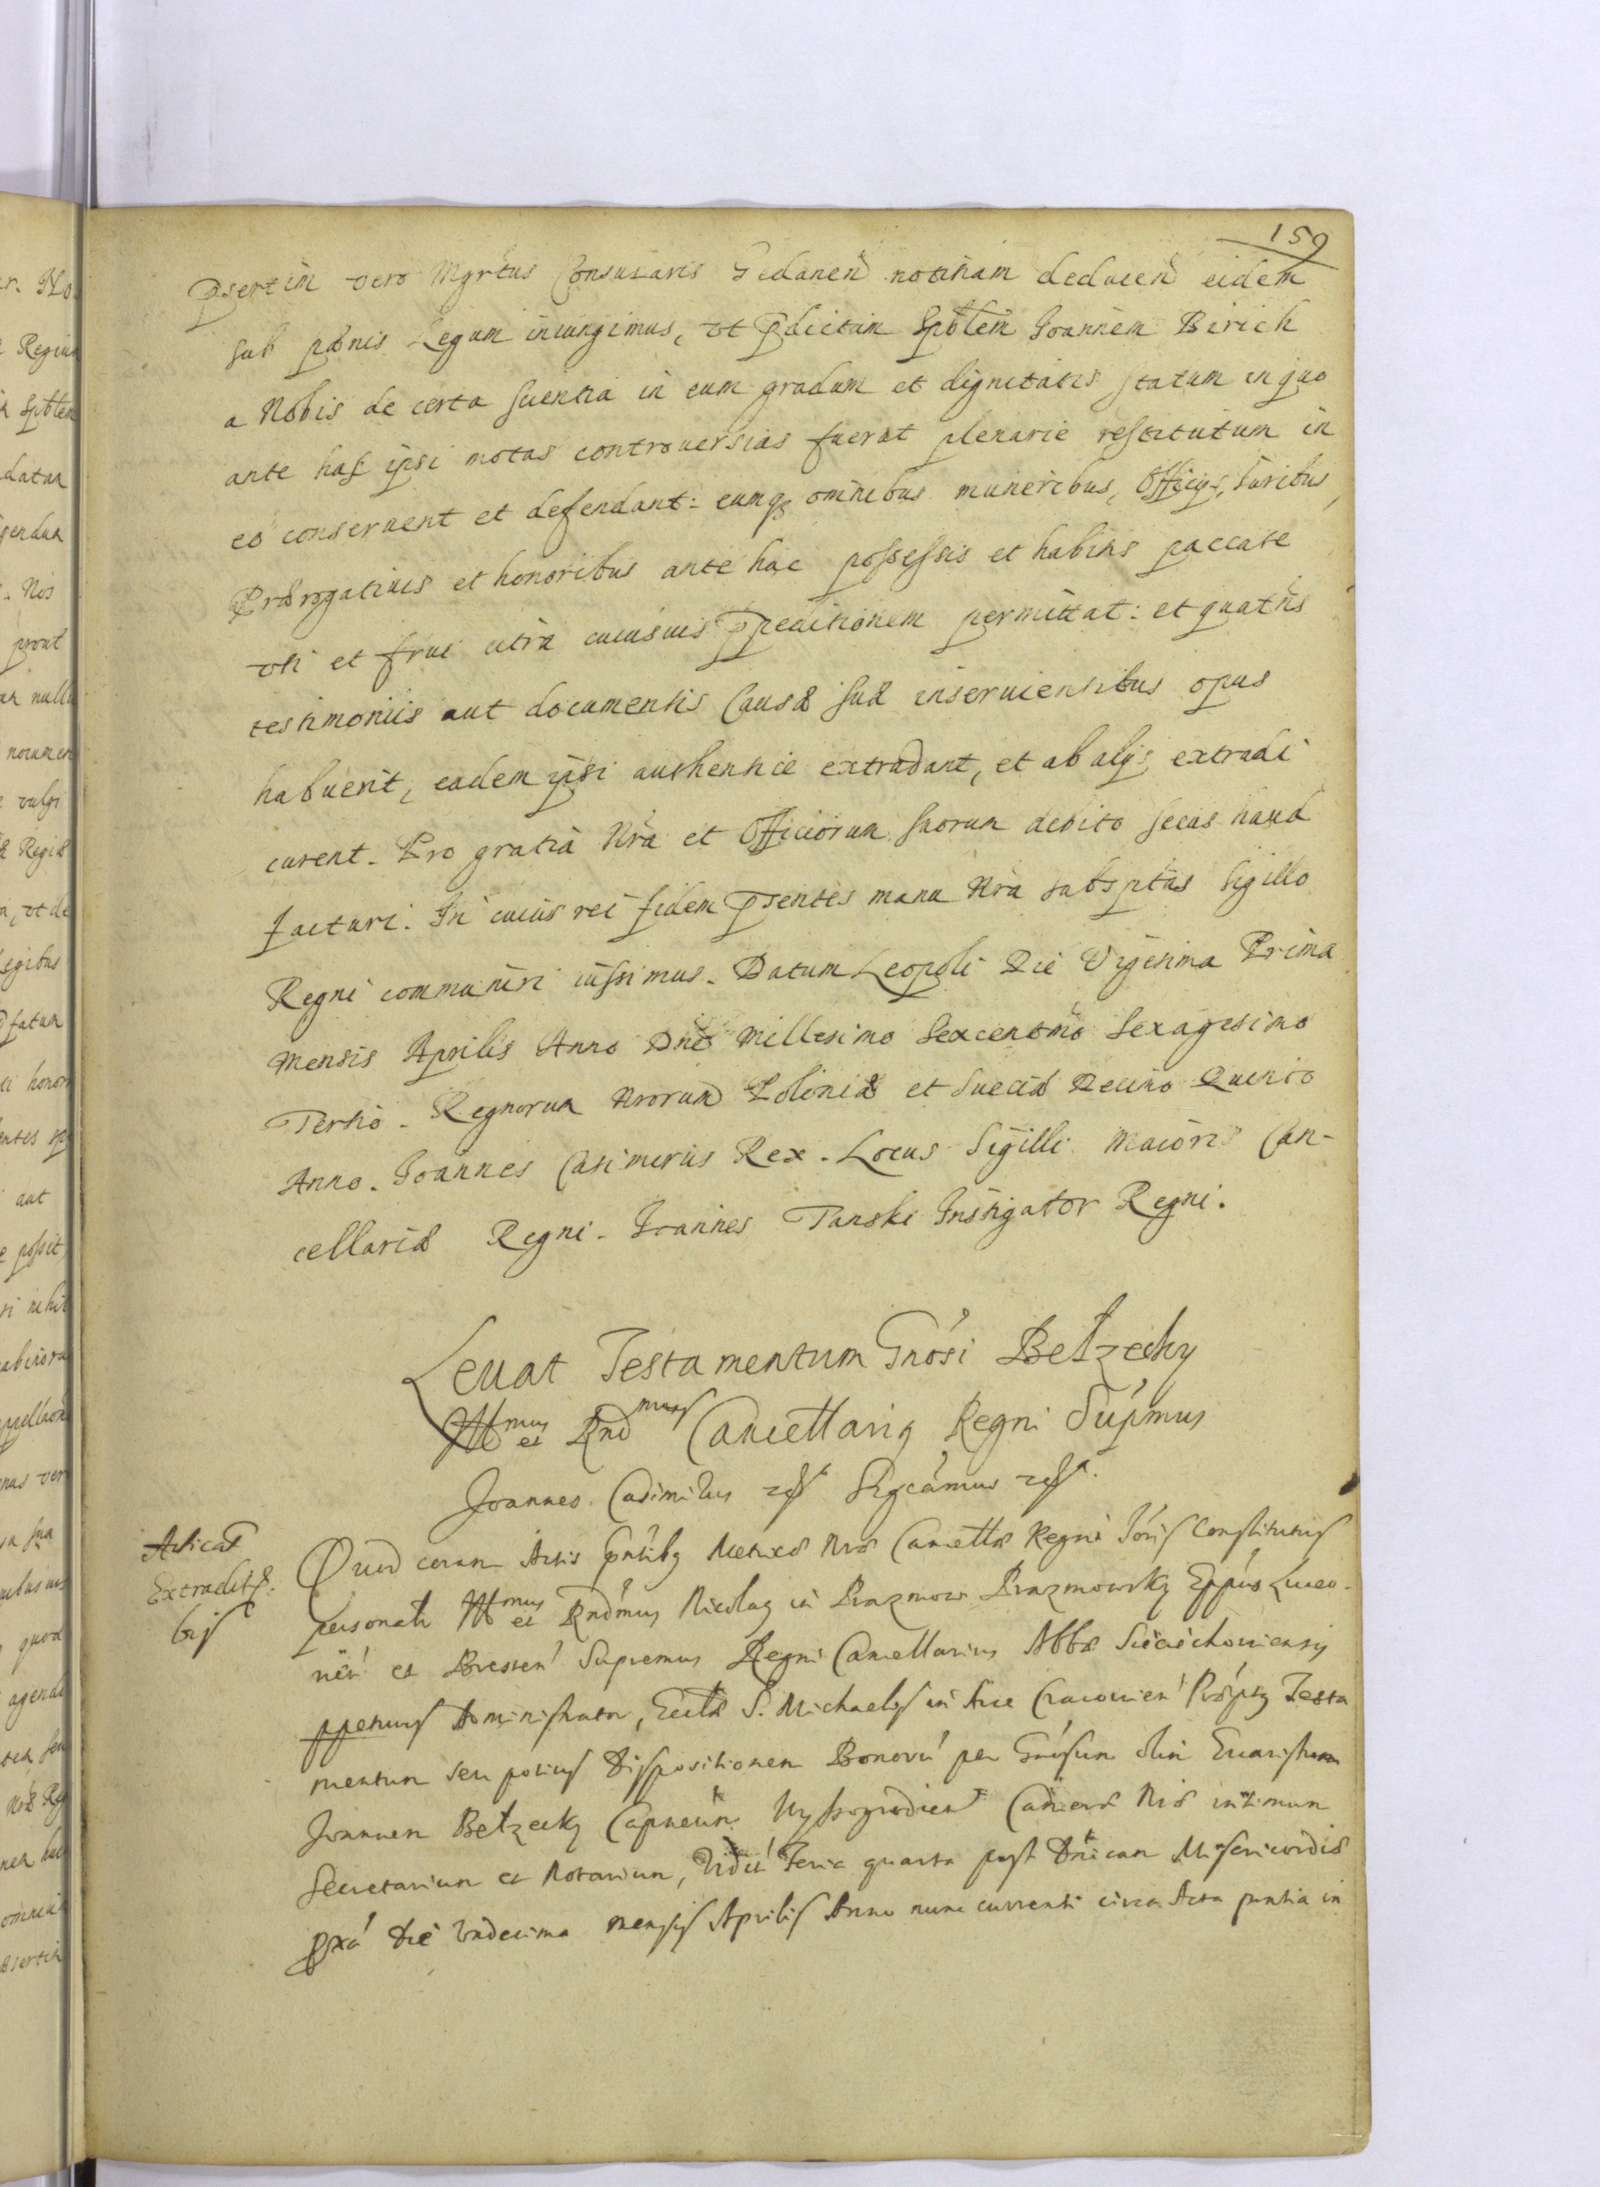 159
Psertim vero Mgrtus Consularis Gedanen notitiam deducen eidem
sub pænis Legum iniungimus, vt pdictum Spblem Joannem Birich
a Nobis de certa scientia in eum gradum et dignitatis statum in quo
ante has ipsi motas controuersias fuerat plenarie restitutum in
eo conseruent et defendant: eumq omnibus muneribus, Officijs, Juribus,
Prærogatiuis et honoribus ante hac possessis et habitis paccate
vti et frui citra cuiusuis ppeditionem permittat: et quatns
testimoniis aut documentis Causæ suæ inseruientibus opus
habuerit, eadem ipsi authentice extradant, et ab alijs extradi
curent. Pro gratia Nra et Officiorum suorum debito secus haud
facturi. In cuius rei fidem psentes manu Nra subsptas Sigillo
Regni communiri iussimus. Datum Leopoli Die Vigesima Prima
Mensis Aprilis Anno Dni Millesimo Sexcentmo Sexagesimo
Tertio. Regnorum Nrorum Poloniæ et Sueciæ Decimo Quinto
Anno. Joannes Casimirus Rex. Locus Sigilli Maioris Can-
cellariæ Regni. Joannes Tanski Instigator Regni.
Leuat Testamentum Gnosi Bełzecky
Illmus et Rndmus Cancellariq Regni Supmus
Joannes Casimirus Sigcamus
Quod coram Actis pntibq Metrices Nræ Cancellæ Regni Constitutus
Exradit
bis
personalr Illmus et Rndmus Nicolaq in Prazmow Prazmowskq Eppus Luceo-
rien et Bresten Supremus Regni Cancellarius Abbæ Sieciechouiensis
ppetuus Administrator, Eccltæ S. Michaelis in Arce Cracouien Testa
mentum seu potius dispositionem Bonoru per Gnosum olim Euaristum
Joannem Bełzecky Capneum Wyssogrodien Nræ intimum
Secretarium et Notarium, Feria quarta post Dnicam Misericordiæ
pxa die Vndecima Mensis Aprilis Anno nunc currenti circa Acta pntia in